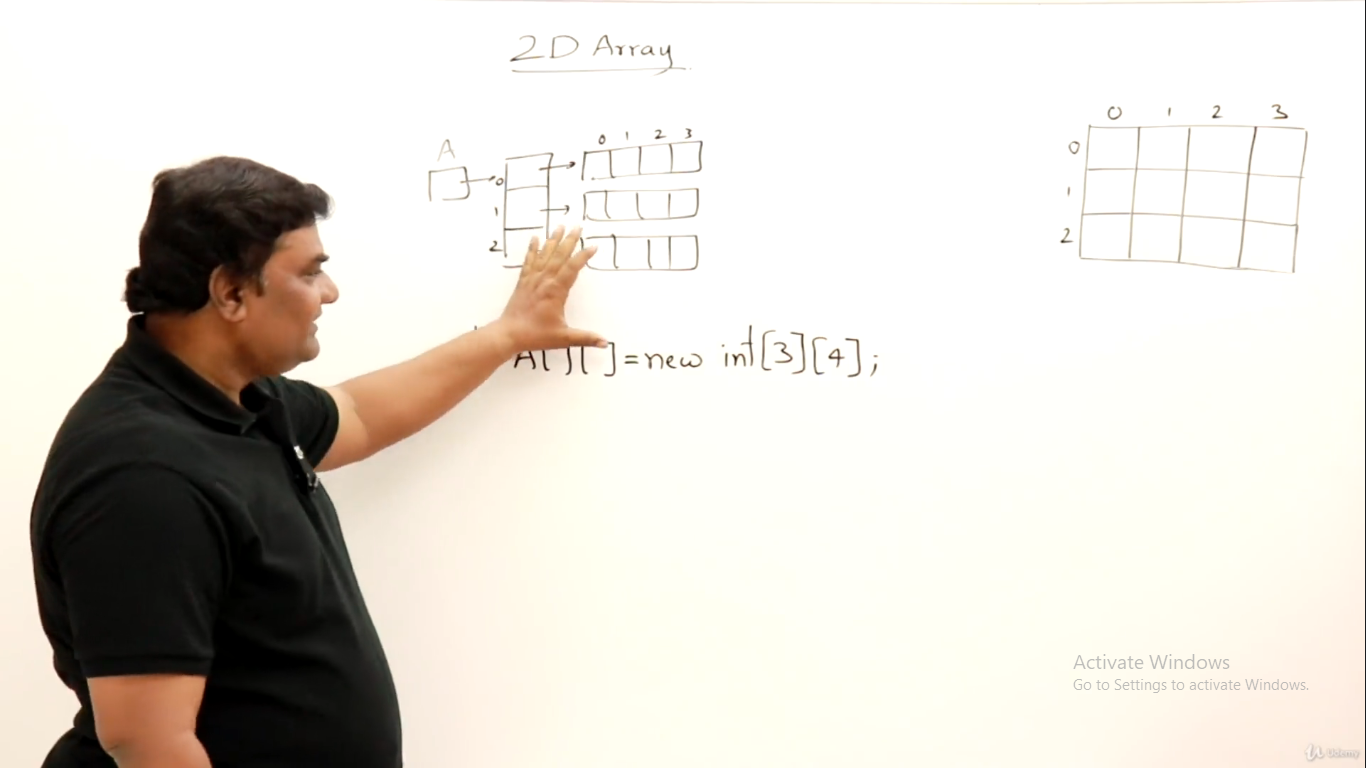 2D Array
0 1 2 3
A
0
1
2
0 1 2 3
0
1
2
A[ ][ ]=new int[3][4];
Activate Windows
Go to Settings to activate Windows.
Udemy